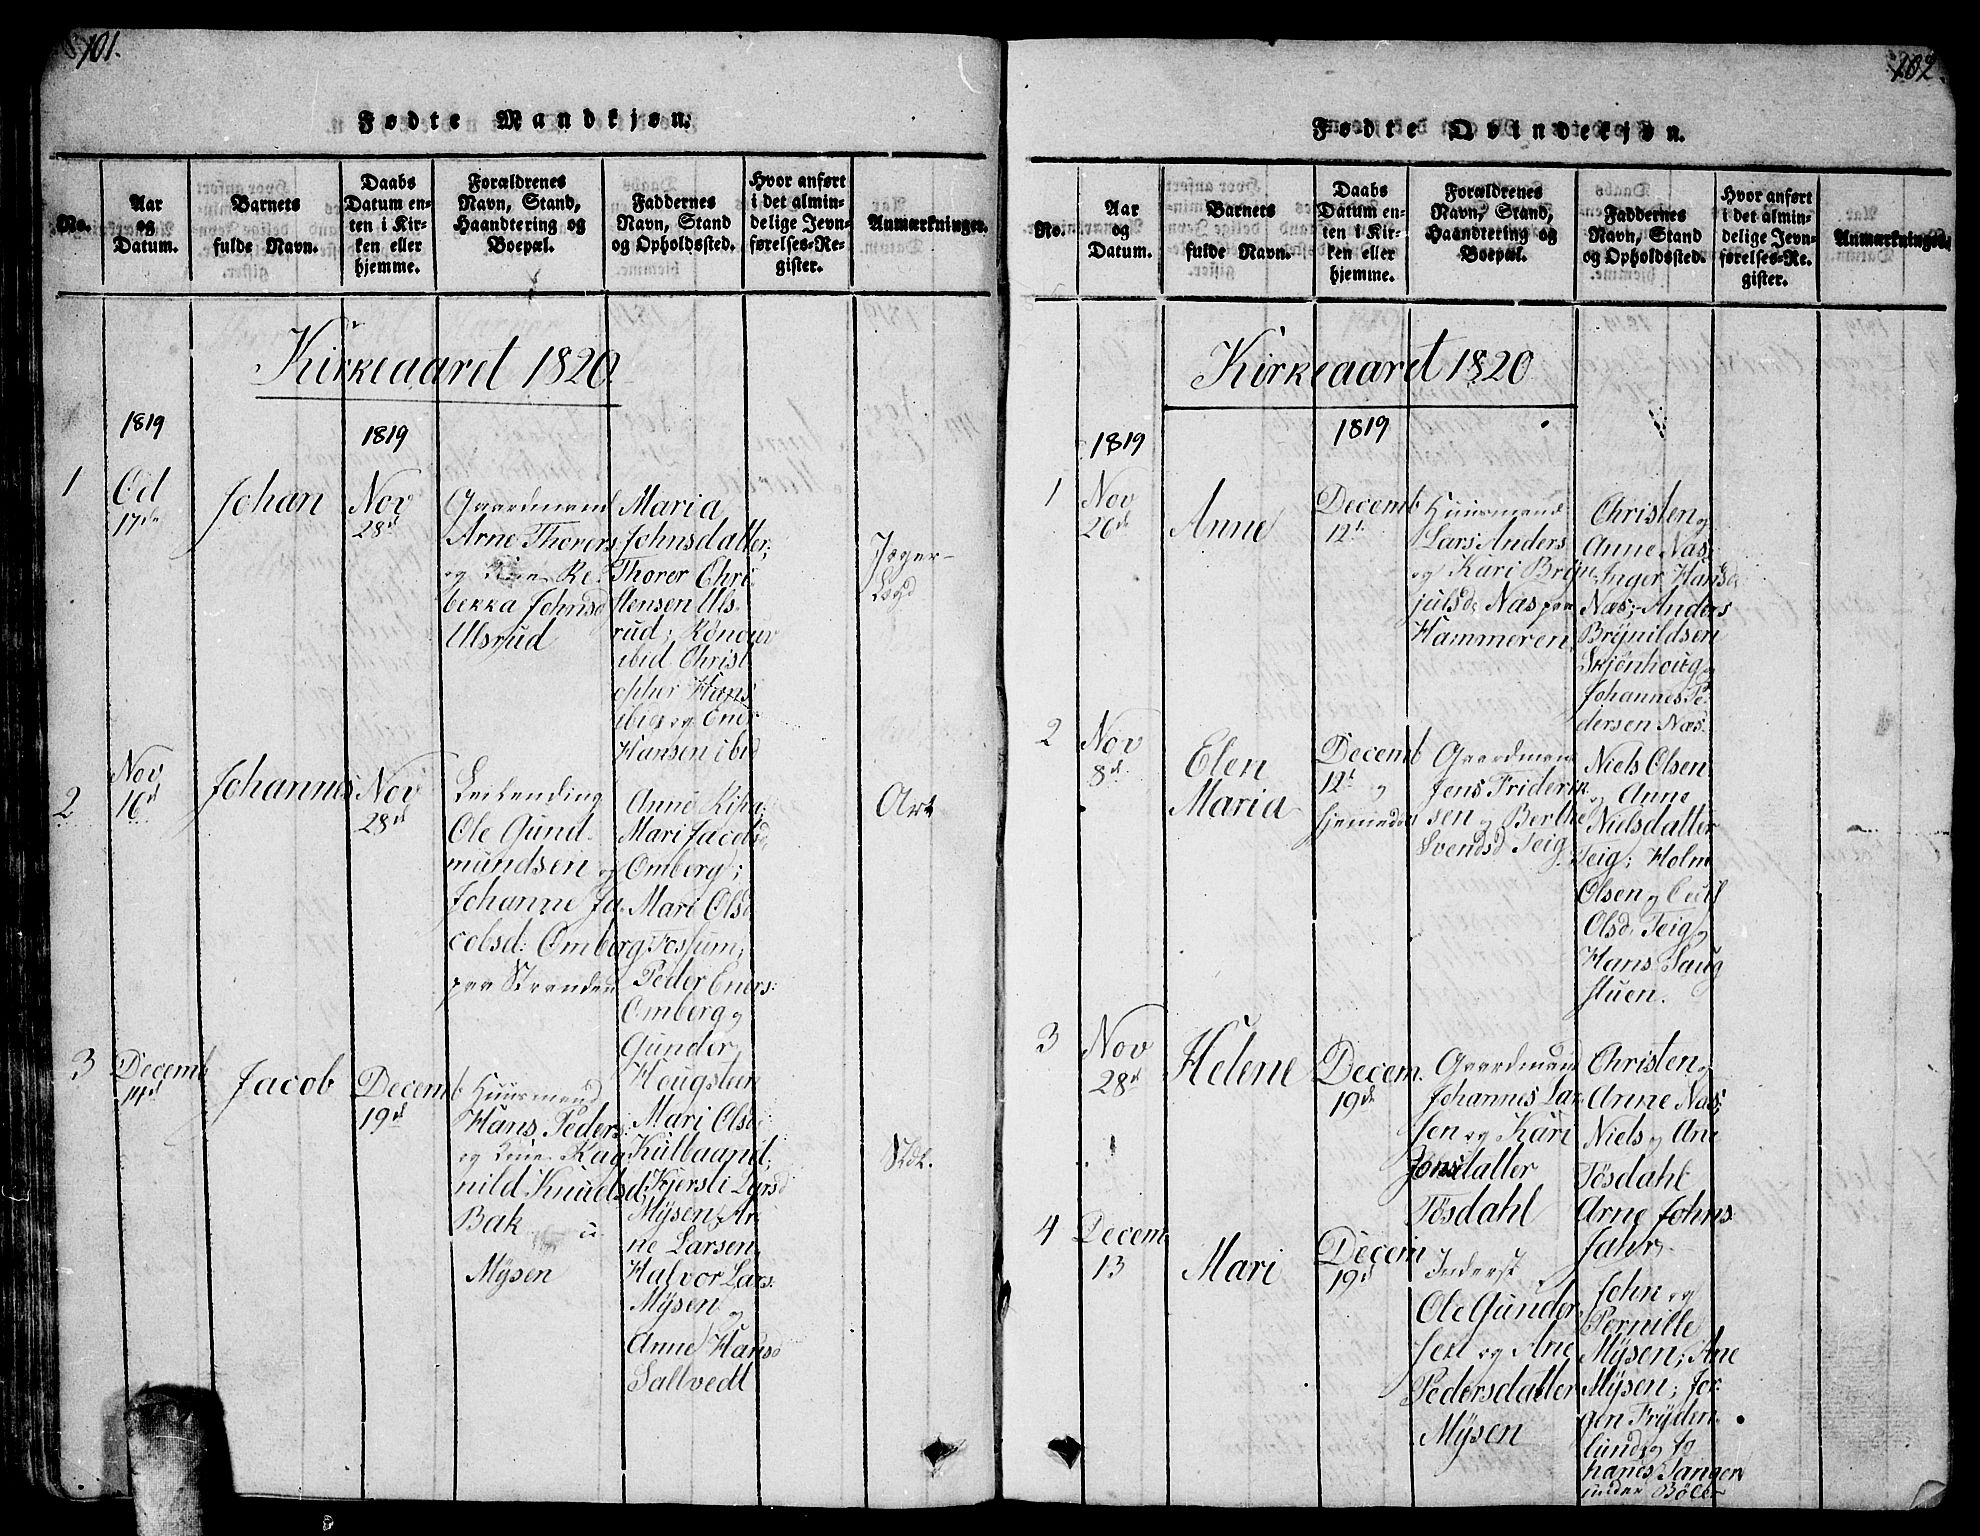 101.
Fødte Mandkjøn.
No.
Aar
og
Datum.
Barnets
fulde Navn.
Daabs
Datum en-
ten i Kir-
ken eller
hjemme.
Forældrenes
Navn, Stand,
Haandtering og
Boepæl.
Faddernes
Navn, Stand
og Opholdssted.
Hvor anført
i det almin-
delige Jevn-
førelses-Re-
gister.
Anmærkninger.
Kirkeaaret 1820.
1819
1819
1
Oct
17de
Johan
Nov
28d
Gaardmand
Arne Thorers
og Kone Re-
bekka Johnsd
Ulsrud
Maria
Johnsdatter;
Thorer Chri
stensen Uls-
rud; Rønnur
ibid Christ
opher Hans
ibid og
Hansen ibid
Jæger-
2
Nov
16d
Johannes
Nov
28d
Leilending
Ole Gund-
mundsen og
Johanne Ja-
cobsd: Omberg
paa Stranden
Anne
Mari Jacobsd
Omberg;
Mari Olsd
Fossum;
Peder Eners:
Omberg og
Gunder
Hougsteen
Art
3
Decemb
14d
Jacob
Decemb
19d
Huusmand
Hans Peders:
og Kone Rag
nild Knudsd
Bak u
Mÿsen
Mari Olsd
Kulbaand;
Kjersti Larsd
Mÿsen, Ar
ne Larsen
Halvor Lars:
Mÿsen og
Anne Hansd
Sallvedt
102.
Fødte Qvindekjøn.
No.
Aar
og
Datum.
Barnets
fulde Navn.
Daabs
Datum en-
ten i Kir-
ken eller
hjemme.
Forældrenes
Navn, Stand,
Haandtering og
Boepæl.
Faddernes
Navn, Stand
og Opholdssted.
Hvor anført
i det almin-
delige Jevn-
førelses-Re-
gister.
Anmærkninger.
Kirkeaaret 1820
1819
1819
1
Nov
26d
Anne
Decemb
12t
Huusmand
Lars Anders
og Kari Brÿn
julsd, Nas paa
Hammeren
Christen og
Anne Nas;
Inger Hansd
Næs; Anders
Brÿnildsen
Skjønhoug og
Johannes Pe
dersen Næs
2
Nov
8d
Elen
Maria
Decemb
12t
hjemmedøbt
Gaardmand
Jens Friderik
sen og Berthe
Svendsd Teig
Niels Olsen
og Anne
Nielsdatter
Teig; Holm
Olsen og
Olsd Teig og
Hans Saug
stuen.
3
Nov
28d
Helene
Decem.
19d
Gaardmand
Johannes Lar
sen og Kari
Jonsdatter
Tösdahl
Christen og
Anne Nas;
Niels og Ane
Tösdahl
Arne Johns
Jahr
4
Decem
13
Mari
Decem
19d
Inderst
Ole Gunder
sen og Ane
Pedersdatter
Mÿsen
John og
Pernille
Mÿsen; Ane
Mÿsen; Jør-
gen Frÿden
lund og Jo
hanes Tangen
under Böler